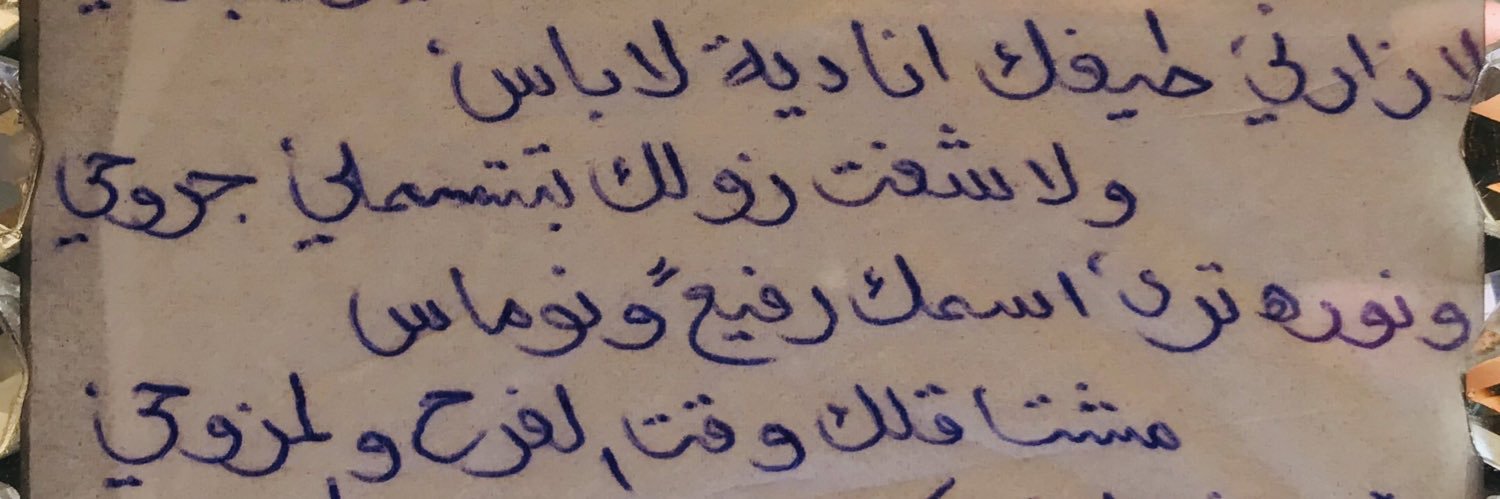 لا زارني طيفك اناديه لا باس
ولا شفت زولك تبتسملي جروحي
ونوره ترى اسمك رفيعٍ ونوماس
مشتاقلك وقت الفرح و لمزوحي